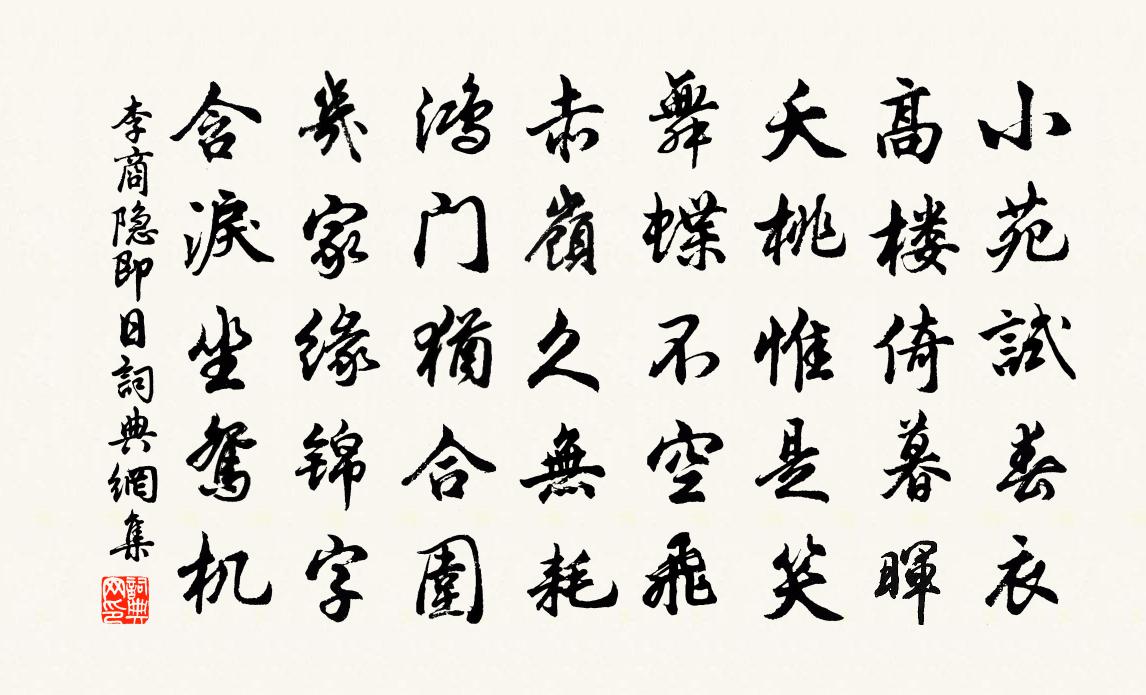 小苑試春衣
高楼倚暮暉
夭桃惟是笑
舞蝶不空飛
赤嶺久無耗
鴻门猶合圍
幾家缘锦字
含淚坐鴛机
李商隐即日詞典網集
詞典网印